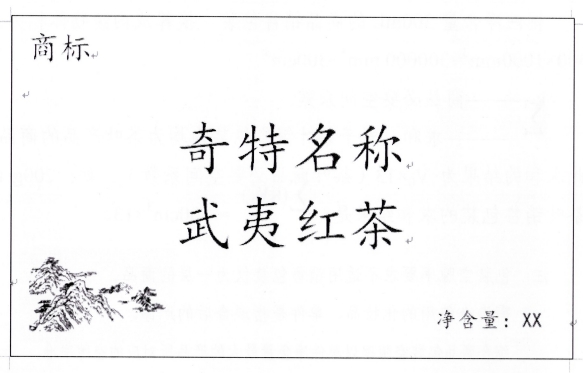 商标
奇特名称
武夷红茶
净含量：XX